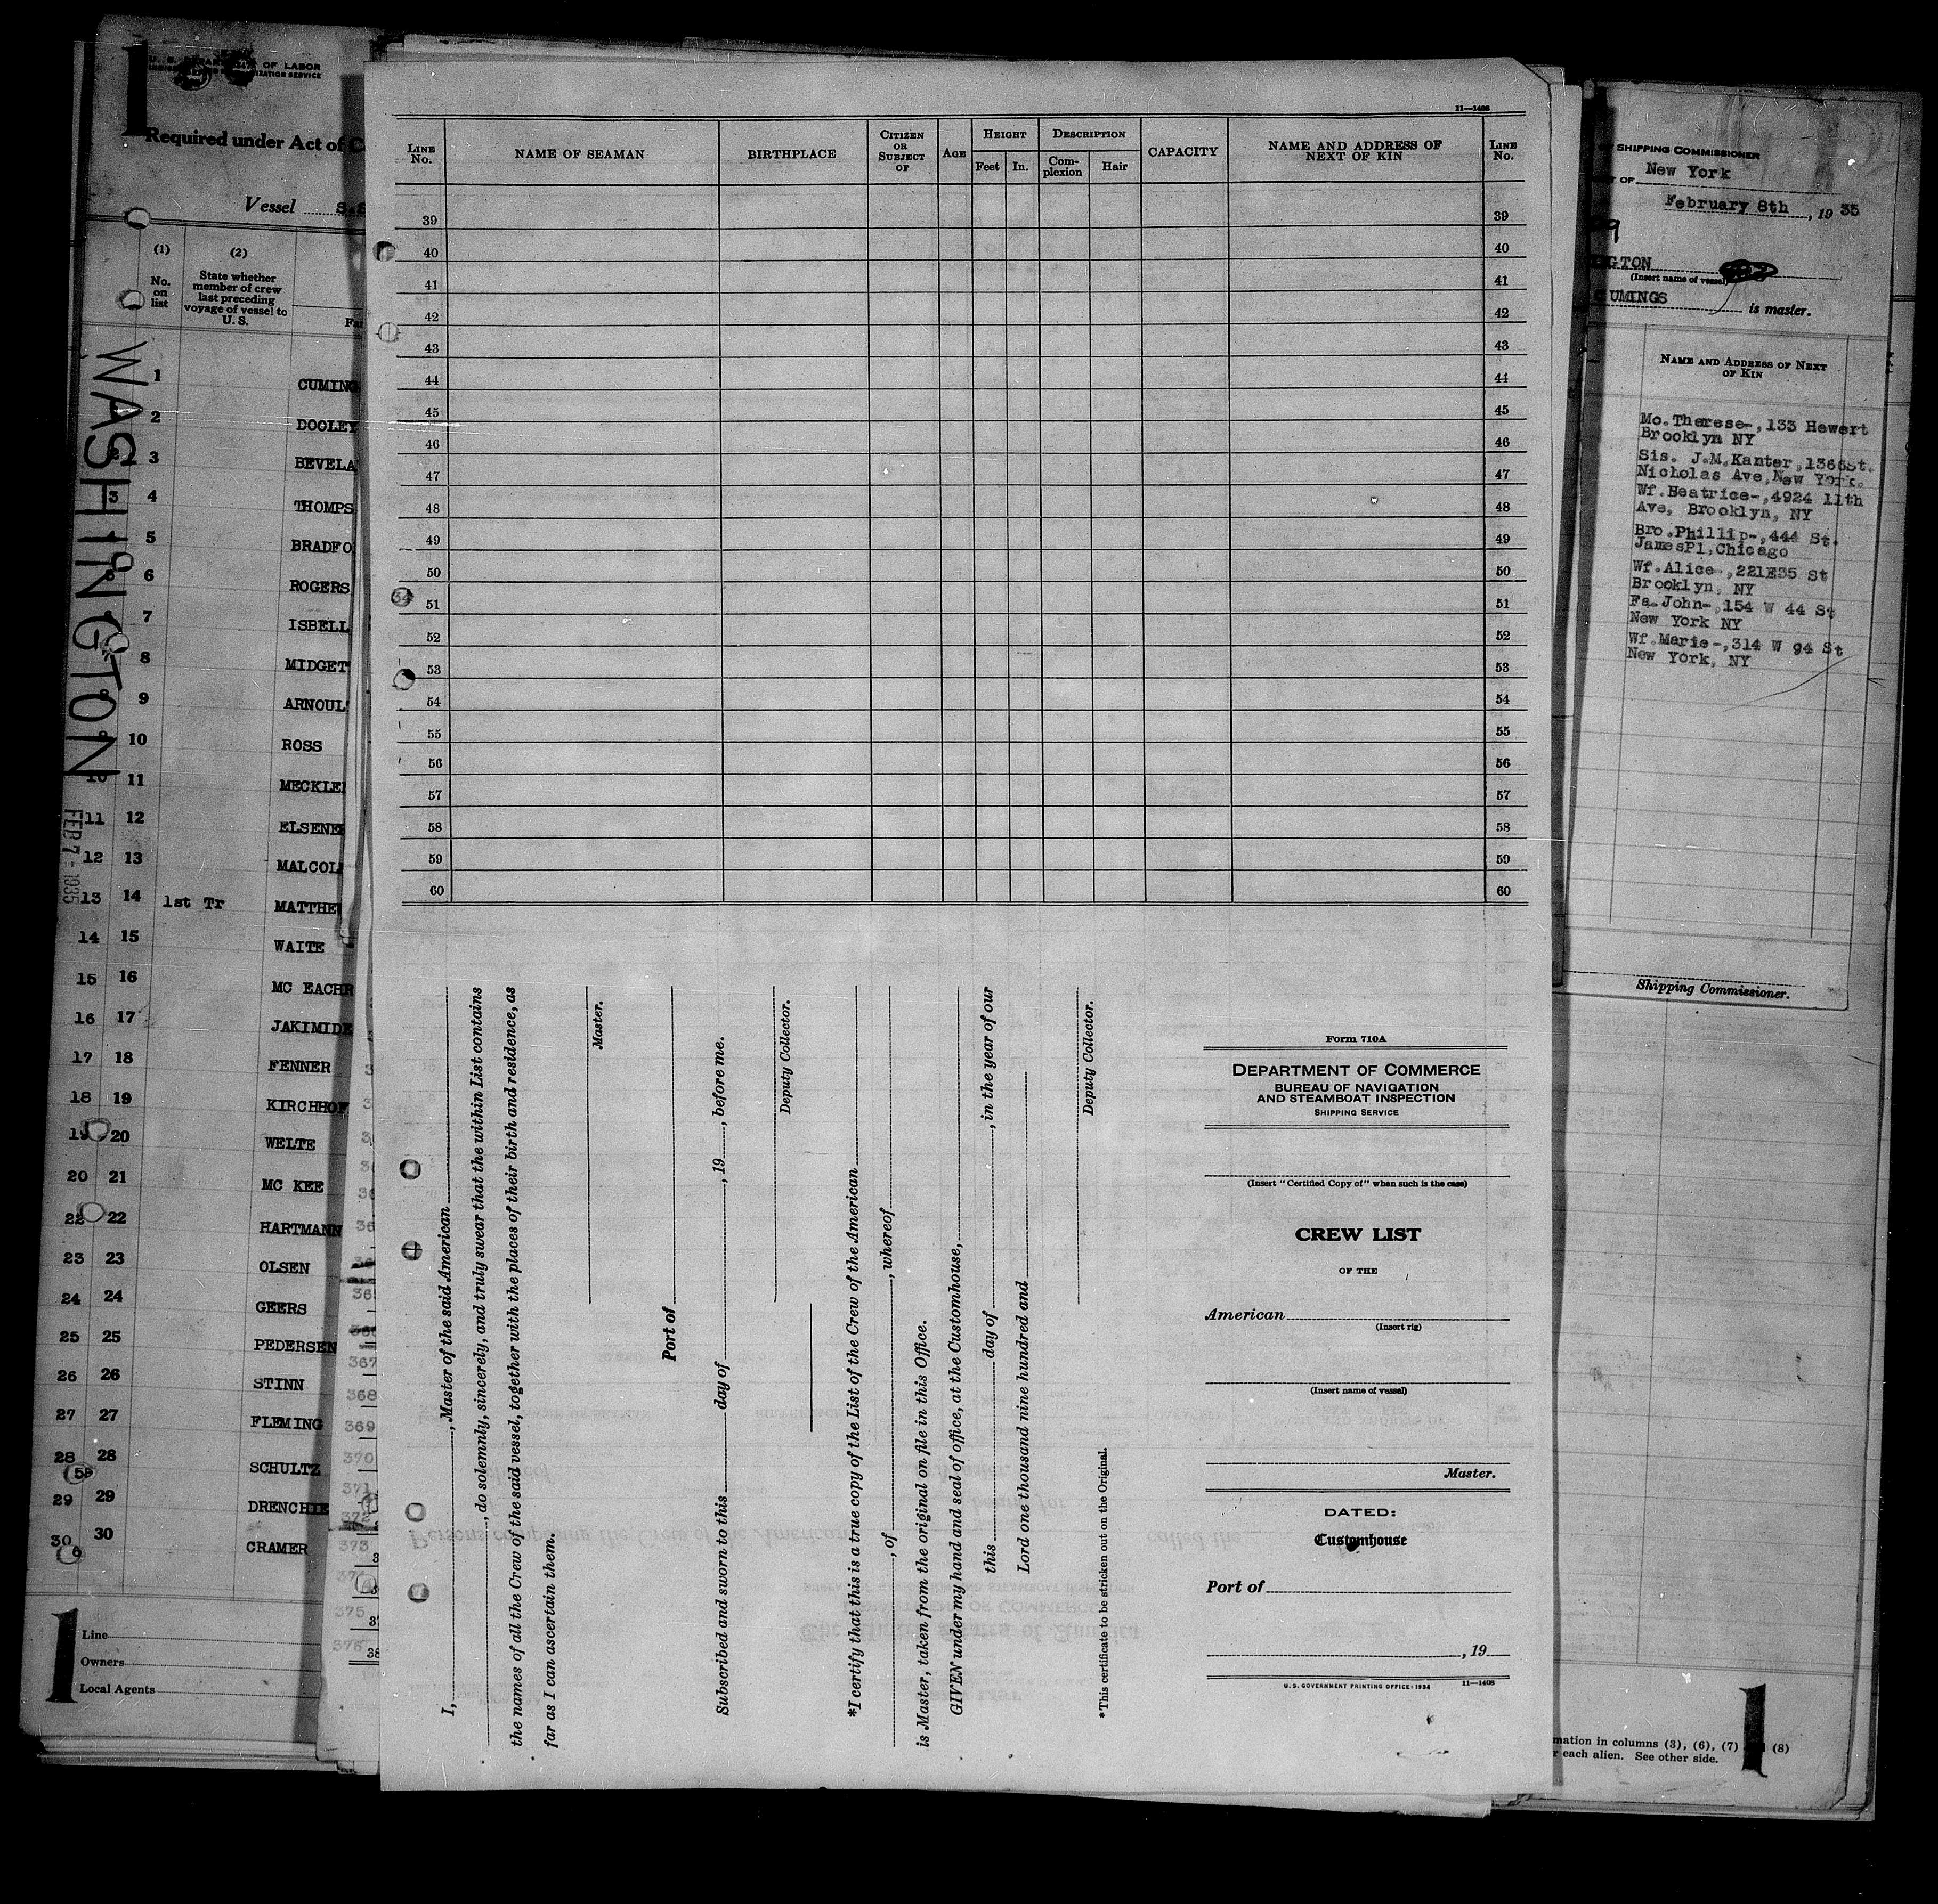 1
U. S. DEPARTMENT OF LABOR
Required under Act of C
Vessel S.S
(1)
No.
on
list
(2)
State whether
member of crew
last preceding
voyage of vessel to
U. S.
WASHINGTON
FEB 7 - 1935
1 CUMING
2 DOOLEY
3 BEVELA
3 4 THOMPS
5 BRADFO
6 ROGERS
7 ISBELL
8 MIDGET
9 ARNOUL
10 ROSS
10 11 MECKLE
11 12 ELSENE
12 13 MALCOL
13 14 1st Tr MATTHE
14 15 WAITE
15 16 MC EACHR
16 17 JAKIMIDE
17 18 FENNER
18 19 KIRCHHOF
19 20 WELTE
20 21 MC KEE
22 22 HARTMANN
23 23 OLSEN
24 24 GEERS
25 25 PEDERSEN
26 26 STINN
27 27 FLEMING
28 28 SCHULTZ
55
29 29 DRENCHIE
30 30 CRAMER
6
367
368
369
370
371
372
373
375
376
1
Line
Owners
Local Agents
11—1408
LINE No.
NAME OF SEAMAN
BIRTHPLACE
CITIZEN OR SUBJECT OF
AGE
HEIGHT
Feet
In.
DESCRIPTION
Com-plexion
Hair
CAPACITY
NAME AND ADDRESS OF NEXT OF KIN
LINE No.
39 39
40 40
41 41
42 42
43 43
44 44
45 45
46 46
47 47
48 48
49 49
50 50
51 51
52 52
53 53
54 54
55 55
56 56
57 57
58 58
59 59
60 60
I, , Master of the said American
, do solemnly, sincerely, and truly swear that the within List contains
the names of all the Crew of the said vessel, together with the places of their birth and residence, as
far as I can ascertain them.
Master.
Port of
Subscribed and sworn to this day of , 19 , before me.
Deputy Collector.
*I certify that this is a true copy of the List of the Crew of the American
, of , whereof
is Master, taken from the original on file in this Office.
GIVEN under my hand and seal of office, at the Customhouse,
this day of , in the year of our
Lord one thousand nine hundred and
Deputy Collector.
*This certificate to be stricken out on the Original.
Form 710A
DEPARTMENT OF COMMERCE
BUREAU OF NAVIGATION
AND STEAMBOAT INSPECTION
SHIPPING SERVICE
(Insert "Certified Copy of" when such is the case)
CREW LIST
OF THE
American
(Insert rig)
(Insert name of vessel)
Master.
DATED:
Customhouse
Port of
, 19
U. S. GOVERNMENT PRINTING OFFICE: 1934 11—1408
SHIPPING COMMISSIONER
T OF New York
February 8th , 19 35
GTON
(Insert name of vessel)
CUMINGS is master.
NAME AND ADDRESS OF NEXT
OF KIN
Mo.Therese-,133 Hewert
Brooklyn NY
Sis. J.M.Kanter,1366St.
Nicholas Ave,New York.
Wf.Beatrice-,4924 11th
Ave, Brooklyn, NY
Bro.Phillip-,444 St.
JamesPl,Chicago
Wf.Alice-,221E35 St
Brooklyn, NY
Fa.John-,154 W 44 St
New York NY
Wf.Marie-,314 W 94 St
New York, NY
Shipping Commissioner.
mation in columns (3), (6), (7) (8)
r each alien. See other side.
1